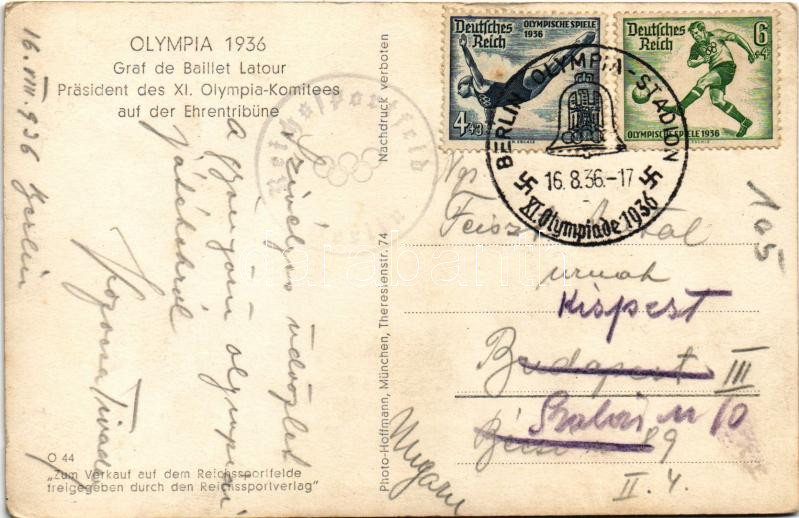 OLYMPIA 1936
Graf de Baillet Latour
Präsident des XI. Olympia-Komitees
auf der Ehrentribüne
16. VIII. 936 Berlin
Szívélyes üdvözlet
a gyönyörű olympiai
játékokról
Tivadar
Reichssportfeld
Berlin
O 44
„Zum Verkauf auf dem Reichssportfelde
freigegeben durch den Reichssportverlag"
Photo-Hoffmann, München, Theresienstr. 74
Nachdruck verboten
Deutsches
Reich
OLYMPISCHE SPIELE
1936
4+3
Deutsches
Reich
6
+4
OLYMPISCHE SPIELE 1936
BERLIN OLYMPIA-STADION
16.8.36.-17
XI. Olympiade 1936
105
Ngs
urnak
Kispest
Budapest III
89
II. 4.
Ungarn
darabanth